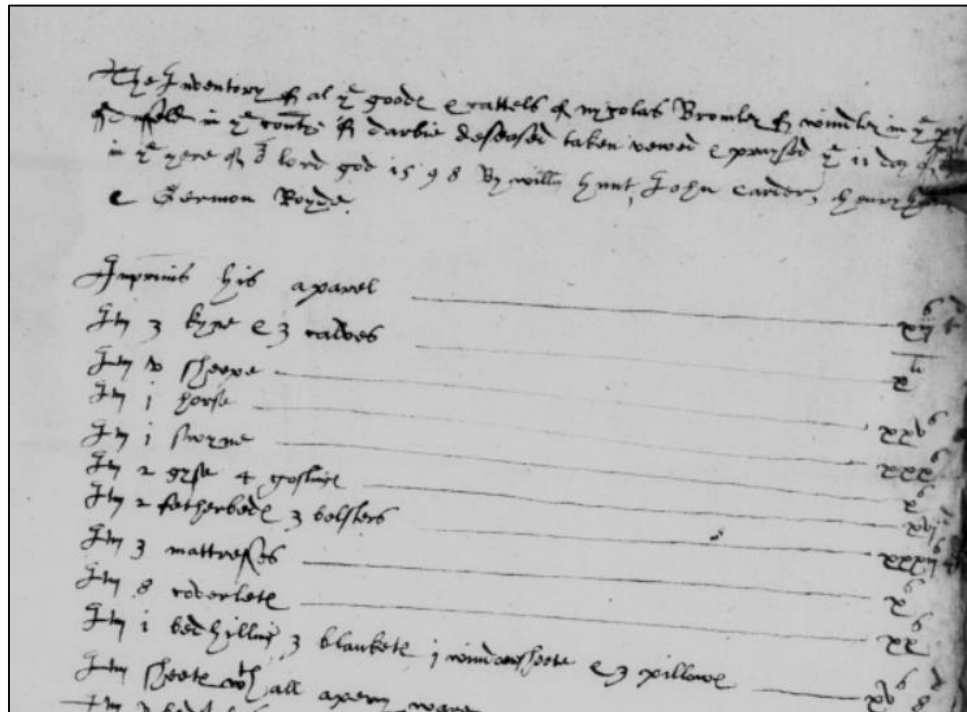 The Inventory of al ye goods & cattels of nycolas Bromley of windley in ye
of duffeld in ye countie of darbie deseased taken vewed & praysed ye 11 day of
in ye yere of lord god 1598 By willm hunt, John Carder, henry
& Germon
Inprimis his aparel
Itm 3 kyne & 3 calves x li
Itm v sheepe xxv s
Itm j horse xxx s
Itm j swyne x s
Itm 2 gyse 4 goslings
Itm 2 fetherbeds 3 bolsters
Itm 3 mattresses x s
Itm 8 coverlets xx s
Itm i bedhilling 3 blankets j windowsheete & 3 pillows xv s
Itm sheets wth all apern ware